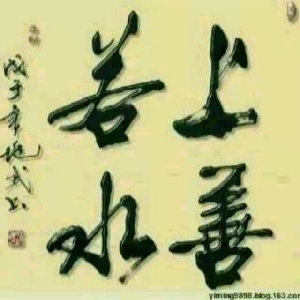 上善
若水
戊子年地武书
yiming9898.blog.163.com